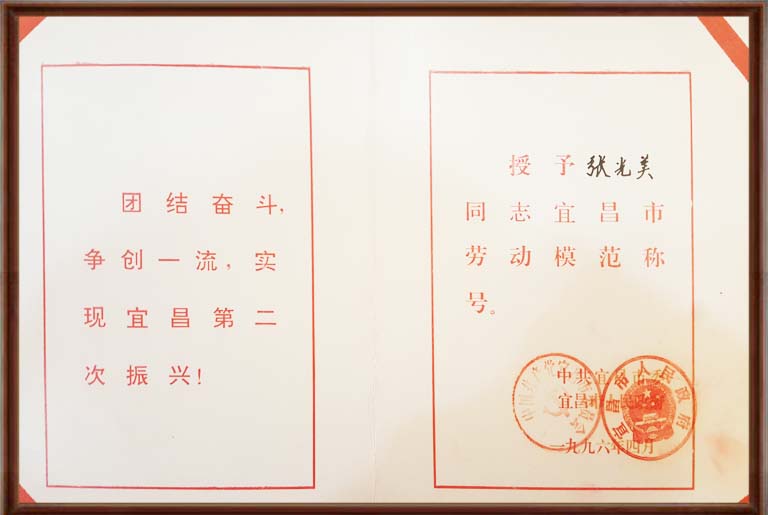 团结奋斗,
争创一流,实
现宜昌第二
次振兴!
授予张光美
同志宜昌市
劳动模范称
号。
中共宜昌市委
宜昌市人民政府
一九九六年四月
宜昌市人民政府